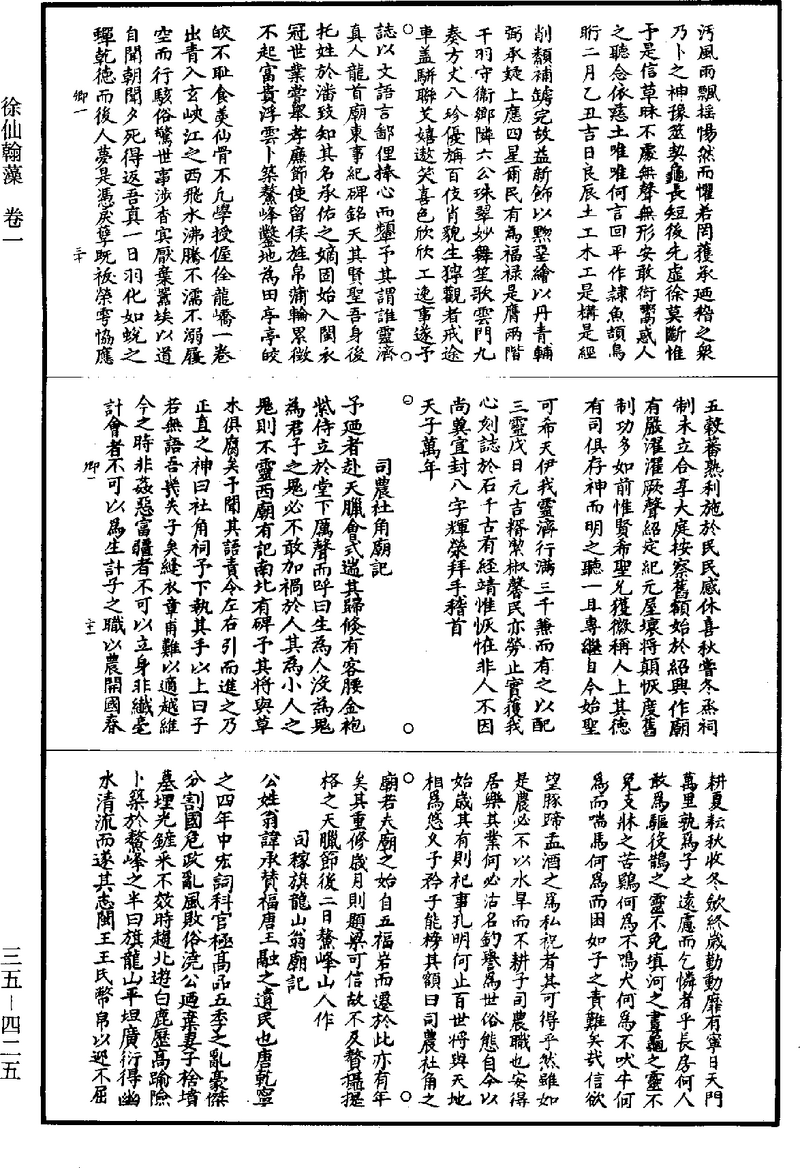 徐仙翰藻　卷一
三五—四二五
污風雨飄搖惕然而懼若罔獲承廼稽之衆
乃卜之神豫筮契龜長短後先虛徐莫斷惟
予是信草昧不處無聲無形安敢衒鬻惑人
之聽念依慈土唯唯何言回平作隸魚頡鳥
䀪二月乙丑吉日良辰土工木工是構是經
削頹補罅完故益新飾以黝堊繪以丹青輔
弼承疑上應四星爾民有為福祿是膺兩階
千羽守衛鄉隣六公珠翠妙舞笙歌雲門九
奏方丈八珍優旃百伎肖貌生獰觀者戒途
車蓋駢聯艾嬉遨笑喜色欣欣工逸事遂予
誌以文語言鄙俚捧心而顰予其謂誰靈濟
真人龍首廟東事紀碑銘天其賢聖吾身後
托姓於潘致知其名承佑之嫡固始入閩衣
冠世業嘗舉孝廉節使留侯旌帛蒲輪累徵
不起富貴浮雲卜築鰲峰鑿地為田亭亭皎
皎不耻食羮仙骨不凡學授偓佺龍嶠一卷
出青入玄峽江之西飛水沸騰不濡不溺履
空而行駭俗驚世事涉杳冥厭棄囂埃以道
自聞朝聞夕死得返吾真一日羽化如蛻之
蟬乾德而後人夢是憑戾孽既祓禜雩協應
卿一
三十
五穀蕃熟利施於民民感休喜秋嘗冬烝祠
制未立合享大庭按察舊額始於紹興作廟
有嚴濯濯厥聲紹定紀元屋壞將顛恢度舊
制功多如前惟賢希聖允獲徽稱人上其德
有司俱存神而明之聽一且專繼自今始聖
可希天伊我靈濟行滿三千兼而有之以配
三靈戊日元吉糈潔椒馨民亦勞止實獲我
心刻誌於石千古有經靖惟恢恠非人不因
尚冀宜封八字輝榮拜手稽首
天子萬年
司農社角廟記
予廼者赴天臘會式遄其歸倏有客腰金袍
紫侍立於堂下厲聲而呼曰生為人沒為鬼
為君子之鬼必不敢加禍於人其為小人之
鬼則不靈西廟有記南北有碑予其將與草
木俱腐矣予聞其語責令左右引而進之乃
正直之神曰社角祠予下執其手以上曰子
若無語吾幾失子矣縫衣章甫難以適越維
今之時非姦惡富疆者不可以立身非纎毫
計會者不可以為生計子之職以農開國春
卿一
三十一
耕夏耘秋收冬歛終歲勤動靡有寧日天門
萬里孰為子之遠慮而乞憐者乎長房何人
敢為驅役鵲之靈不免填河之晝龜之靈不
免支牀之苦鷄何為不鳴犬何為不吠牛何
為而喘馬何為而困如子之責難矣哉信欲
望豚蹄盂酒之為私祝者其可得乎然雖如
是農必不以水旱而不耕子司農職也安得
居樂其業何必沽名釣譽為世俗態自今以
始歲其有則祀事孔明何止百世將與天地
相為悠久予矜子能榜其額曰司農社角之
廟若夫廟之始自五福岩而遷於此亦有年
矣其重修歲月則題梁可信故不及贅攝提
格之天臘節後二日鰲峰山人作
司稼旗龍山翁廟記
公姓翁諱承贊福唐王融之遺民也唐乾寧
之四年中宏詞科官極高品五季之亂豪傑
分割國危政亂風敗俗澆公廼棄妻子捨墳
墓埋光鏟采不效時趨北遊白鹿歷高踰險
卜築於鰲峰之半曰旗龍山平坦廣衍得幽
水清流而遂其志閩王王氏幣帛以迎不屈